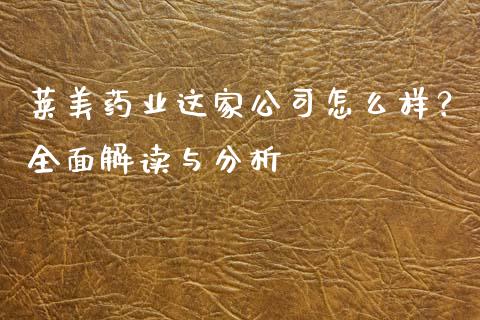 莱美药业这家公司怎么样？
全面解读与分析